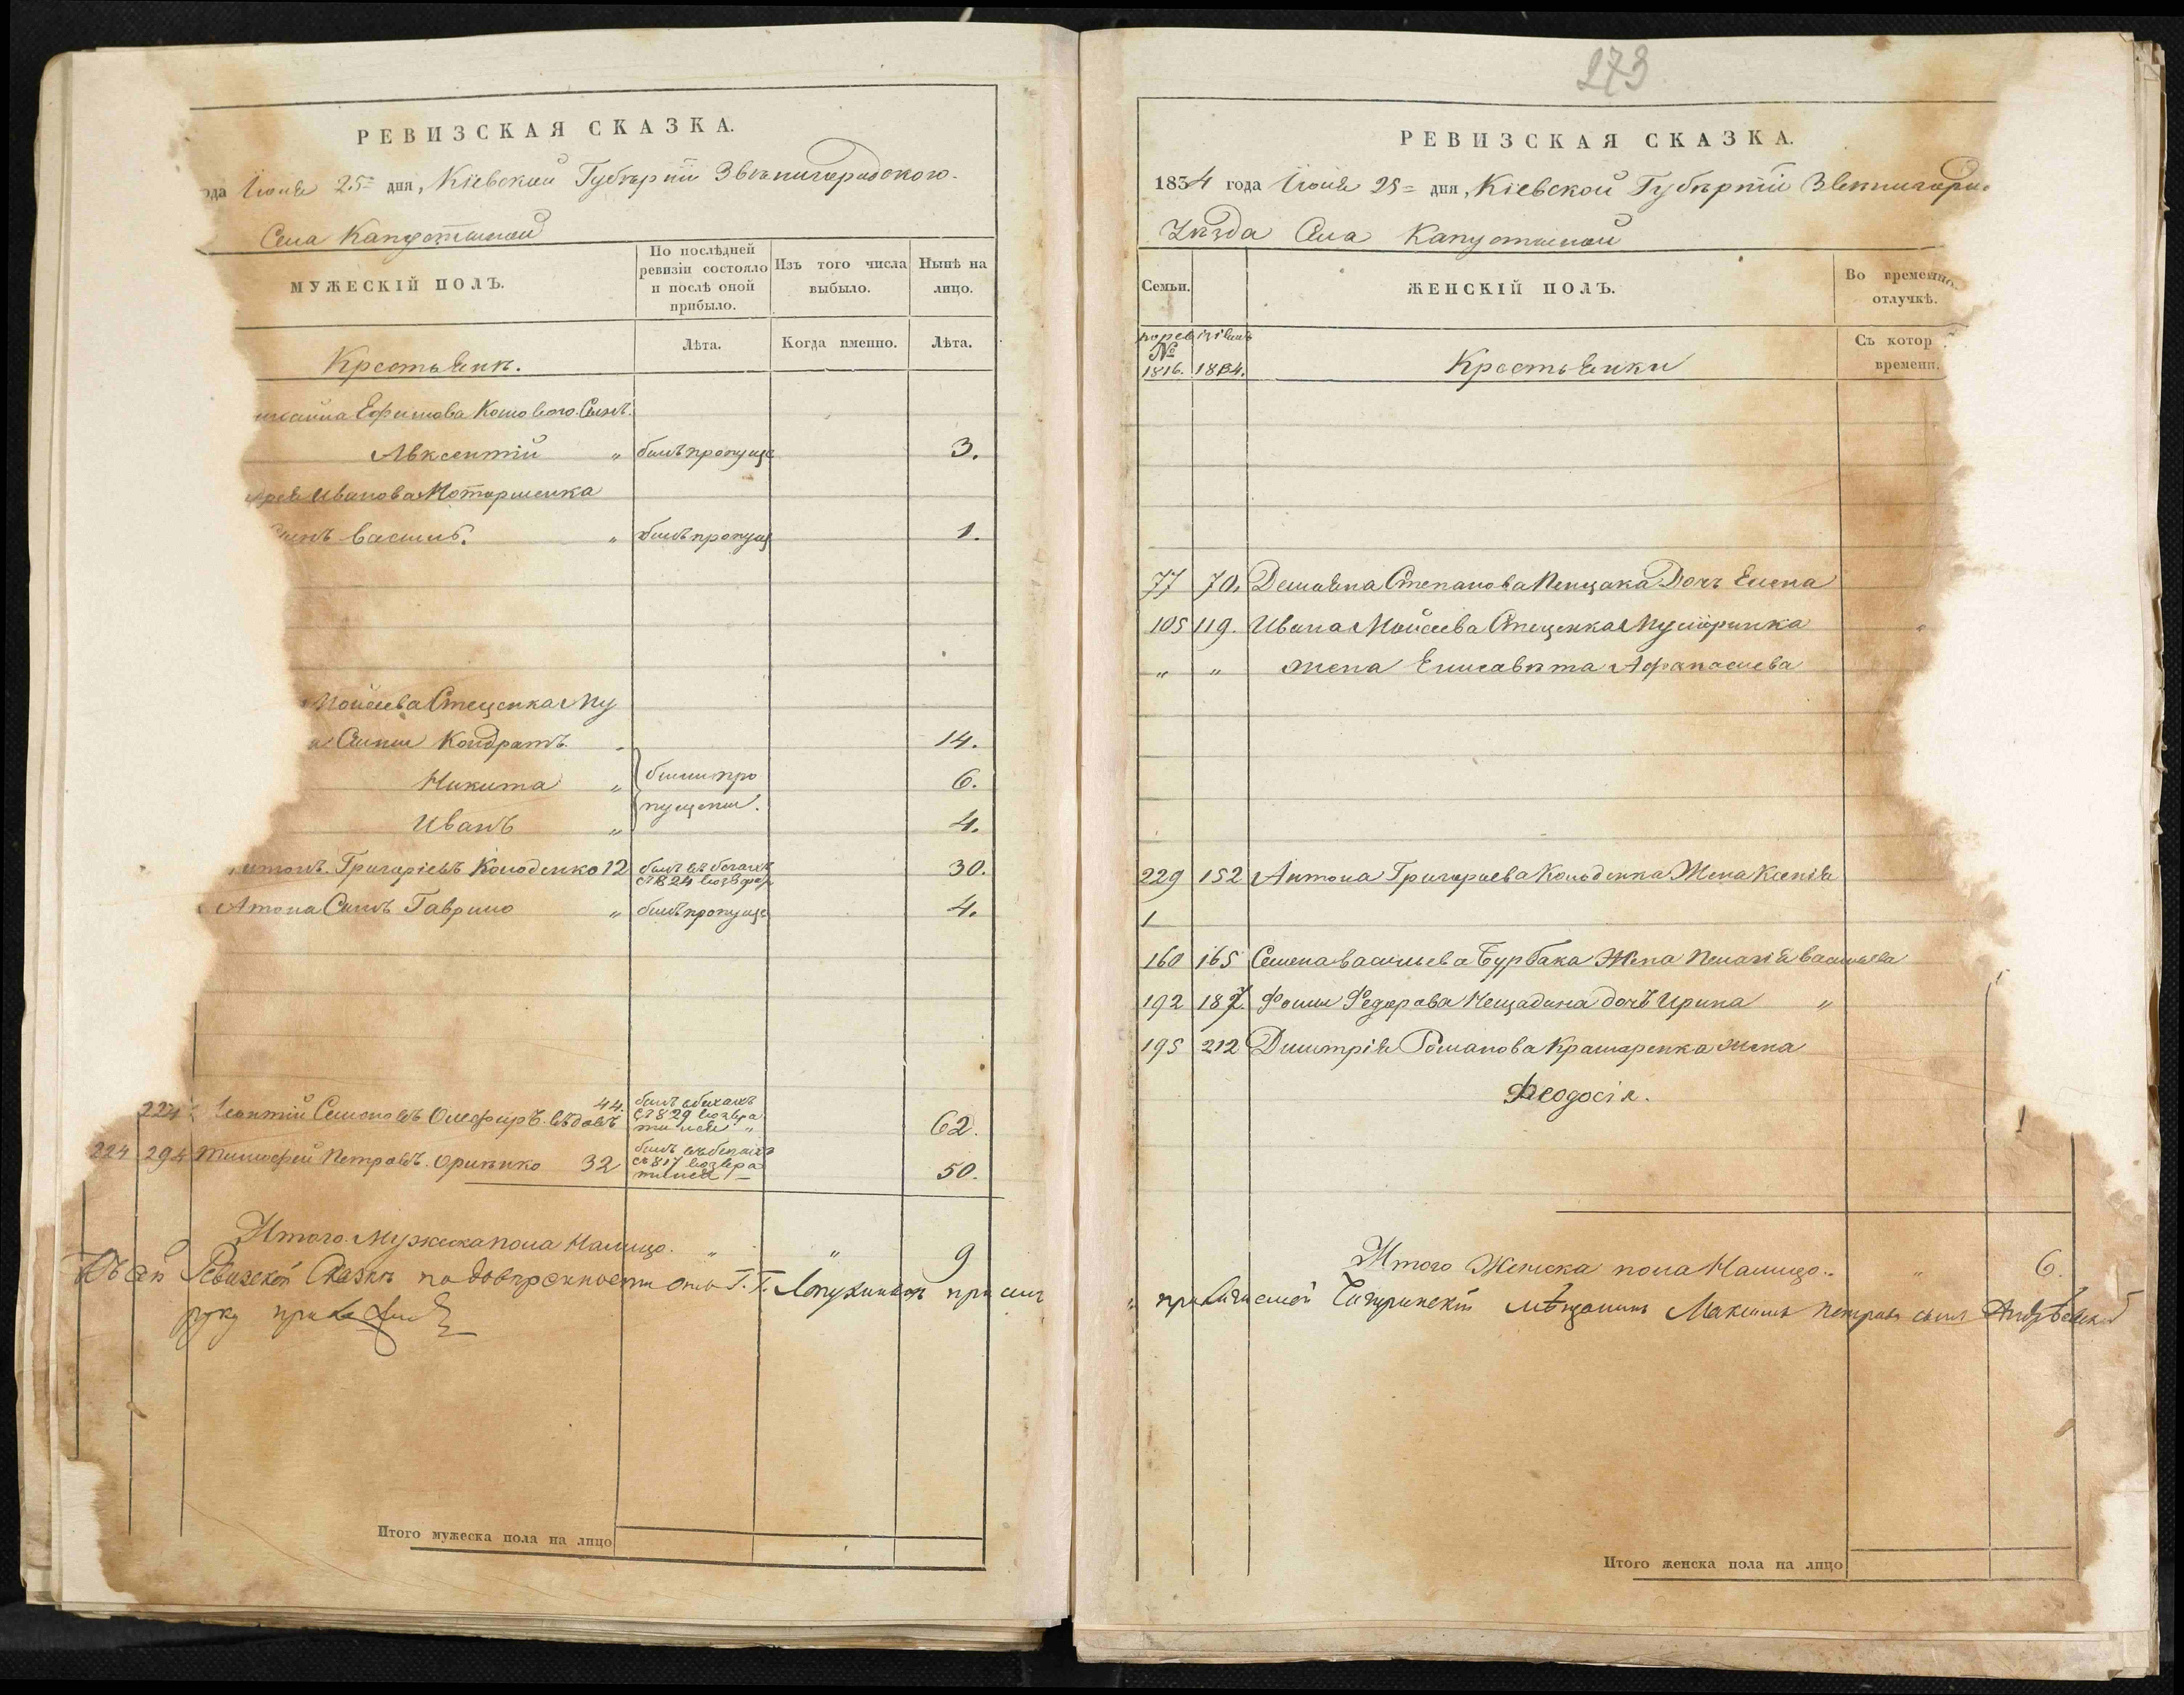 РЕВИЗСКАЯ СКАЗКА.
Іюня 25 = дня, Кіевской Губѣрніи Звѣнигородского.
Села Капустиной
МУЖЕСКІЙ ПОЛЪ.
По послѣдней ревизіи состояло и послѣ оной прибыло.
Изъ того числа выбыло.
Нынѣ на лицо.
Лѣта.
Когда именно.
Лѣта.
Крестьянѣ.
Ефимова Кошового Сынъ.
Авксентій " былъ пропуще 3.
Иванова Моторшенка
Сынъ Василь. " былъ пропущ 1.
Мойсеева Стеценка Пу
Сыны Кондратъ. 14.
Никита " были про 6.
пущены.
Иванъ " 4.
Григоріевъ Колоденко 12 былъ въ бегахъ 30.
с 1824 возвра
Антона Сынъ Гаврило " былъ пропуще 4.
Семеновъ Олефиръ вѣдовъ 44. былъ вбегахъ с 1829 возвра тился " 62.
224 294 Тимофей Петровъ Оринико 32 былъ въ бегахъ с 1817 возвра тился 50.
Итого Мужеска пола Налицо. " " 9
Къ сей Ревизской Сказкѣ по довѣренности отъ Г. Г. Лопухиныхъ при сил
руку приложилъ
273
РЕВИЗСКАЯ СКАЗКА.
1834 года Іюня 25 = дня, Кіевской Губѣрніи Звѣнигоро
Уѣзда Села Капустиной
Семьи.
ЖЕНСКІЙ ПОЛЪ.
Во временно отлучкѣ.
по ревизіямъ
№
1816. 1834.
Крестьянки
Съ котор
времени.
77 70. Демьяна Степанова Пенцака Дочь Елена
105 119. Ивана Мойсеева Стеценка
" " жена Елисавѣта Афанасиева
229 152 Антона Григориева Колоденка Жена Ксенія
1
160 165 Семена Васильева Бурбака Жена Пелагія Васильева
192 187. Фомы Федорова Нещадина дочь Ирина "
195 212 Димитрія Романова Крамаренка жена
Феодосія.
1
Итого Женска пола Налицо. " 6.
Чигиринскій мѣщанинъ Максимъ Петровъ сынъ
Итого мужеска пола на лицо
Итого женска пола на лицо